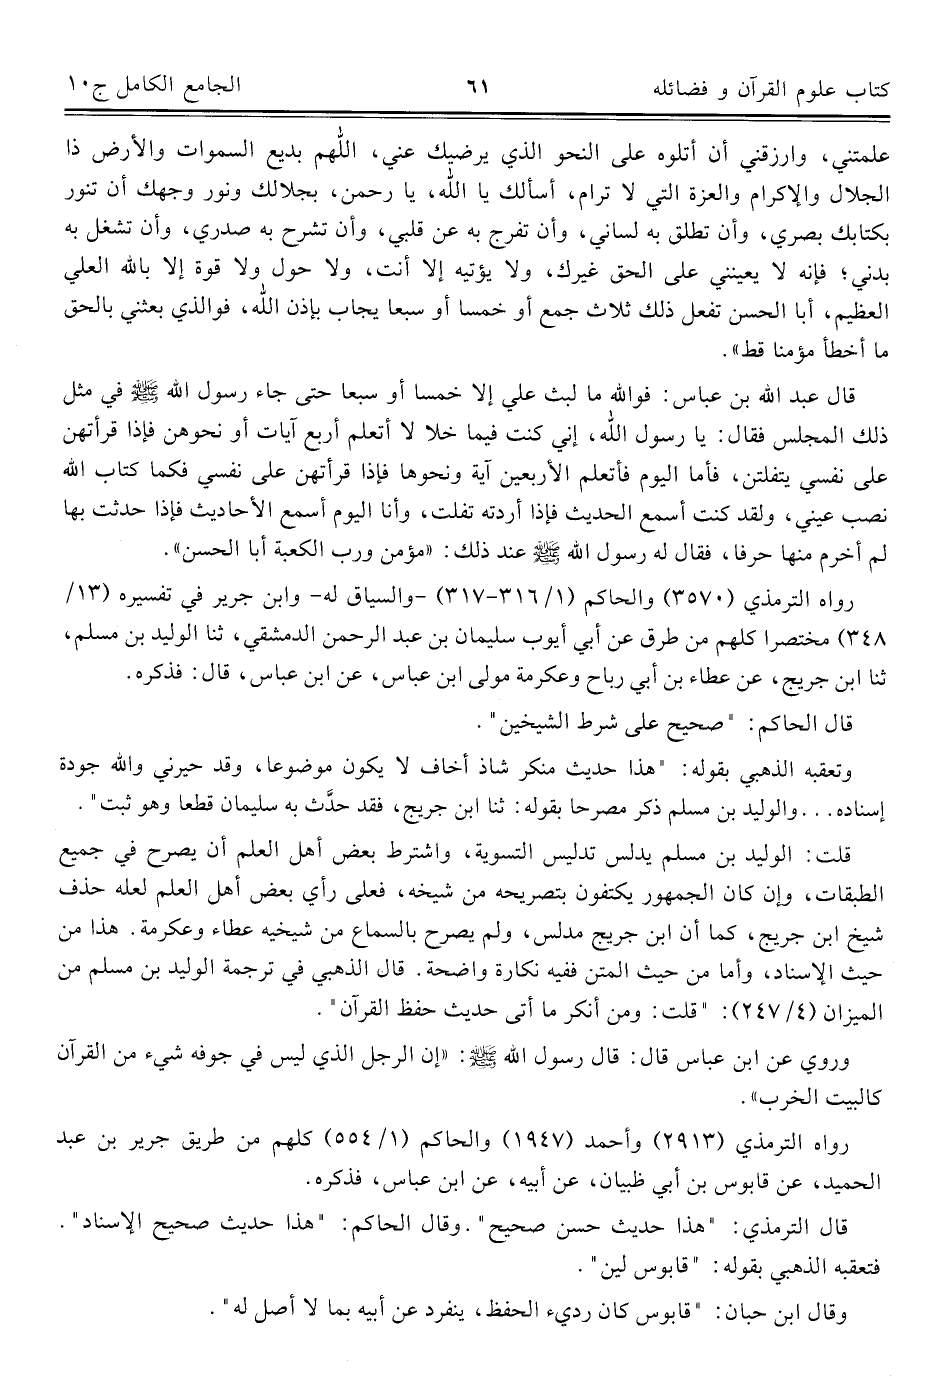 كتاب علوم القرآن و فضائله ٦١ الجامع الكامل ج١٠
علمتني، وارزقني أن أتلوه على النحو الذي يرضيك عني، اللّٰهم بديع السموات والأرض ذا
الجلال والإكرام والعزة التي لا ترام، أسألك يا اللّٰه، يا رحمن، بجلالك ونور وجهك أن تنور
بكتابك بصري، وأن تطلق به لساني، وأن تفرج به عن قلبي، وأن تشرح به صدري، وأن تشغل به
بدني؛ فإنه لا يعينني على الحق غيرك، ولا يؤتيه إلا أنت، ولا حول ولا قوة إلا بالله العلي
العظيم، أبا الحسن تفعل ذلك ثلاث جمع أو خمسا أو سبعا يجاب بإذن اللّٰه، فوالذي بعثني بالحق
ما أخطأ مؤمنا قط».
قال عبد الله بن عباس: فوالله ما لبث علي إلا خمسا أو سبعا حتى جاء رسول الله ﷺ في مثل
ذلك المجلس فقال: يا رسول اللّٰه، إني كنت فيما خلا لا أتعلم أربع آيات أو نحوهن فإذا قرأتهن
على نفسي يتفلتن، فأما اليوم فأتعلم الأربعين آية ونحوها فإذا قرأتهن على نفسي فكما كتاب الله
نصب عيني، ولقد كنت أسمع الحديث فإذا أردته تفلت، وأنا اليوم أسمع الأحاديث فإذا حدثت بها
لم أخرم منها حرفا، فقال له رسول الله ﷺ عند ذلك: «مؤمن ورب الكعبة أبا الحسن».
رواه الترمذي (٣٥٧٠) والحاكم (١/ ٣١٦-٣١٧) -والسياق له- وابن جرير في تفسيره (١٣/
٣٤٨) مختصرا كلهم من طرق عن أبي أيوب سليمان بن عبد الرحمن الدمشقي، ثنا الوليد بن مسلم،
ثنا ابن جريج، عن عطاء بن أبي رباح وعكرمة مولى ابن عباس، عن ابن عباس، قال: فذكره.
قال الحاكم: "صحيح على شرط الشيخين".
وتعقبه الذهبي بقوله: "هذا حديث منكر شاذ أخاف لا يكون موضوعا، وقد حيرني والله جودة
إسناده...والوليد بن مسلم ذكر مصرحا بقوله: ثنا ابن جريج، فقد حدَّث به سليمان قطعا وهو ثبت".
قلت: الوليد بن مسلم يدلس تدليس التسوية، واشترط بعض أهل العلم أن يصرح في جميع
الطبقات، وإن كان الجمهور يكتفون بتصريحه من شيخه، فعلى رأي بعض أهل العلم لعله حذف
شيخ ابن جريج، كما أن ابن جريج مدلس، ولم يصرح بالسماع من شيخيه عطاء وعكرمة. هذا من
حيث الإسناد، وأما من حيث المتن ففيه نكارة واضحة. قال الذهبي في ترجمة الوليد بن مسلم من
الميزان (٤/ ٢٤٧): "قلت: ومن أنكر ما أتى حديث حفظ القرآن".
وروي عن ابن عباس قال: قال رسول الله ﷺ: «إن الرجل الذي ليس في جوفه شيء من القرآن
كالبيت الخرب».
رواه الترمذي (٢٩١٣) وأحمد (١٩٤٧) والحاكم (١/ ٥٥٤) كلهم من طريق جرير بن عبد
الحميد، عن قابوس بن أبي ظبيان، عن أبيه، عن ابن عباس، فذكره.
قال الترمذي: "هذا حديث حسن صحيح".وقال الحاكم: "هذا حديث صحيح الإسناد".
فتعقبه الذهبي بقوله: "قابوس لين".
وقال ابن حبان: "قابوس كان رديء الحفظ، ينفرد عن أبيه بما لا أصل له".